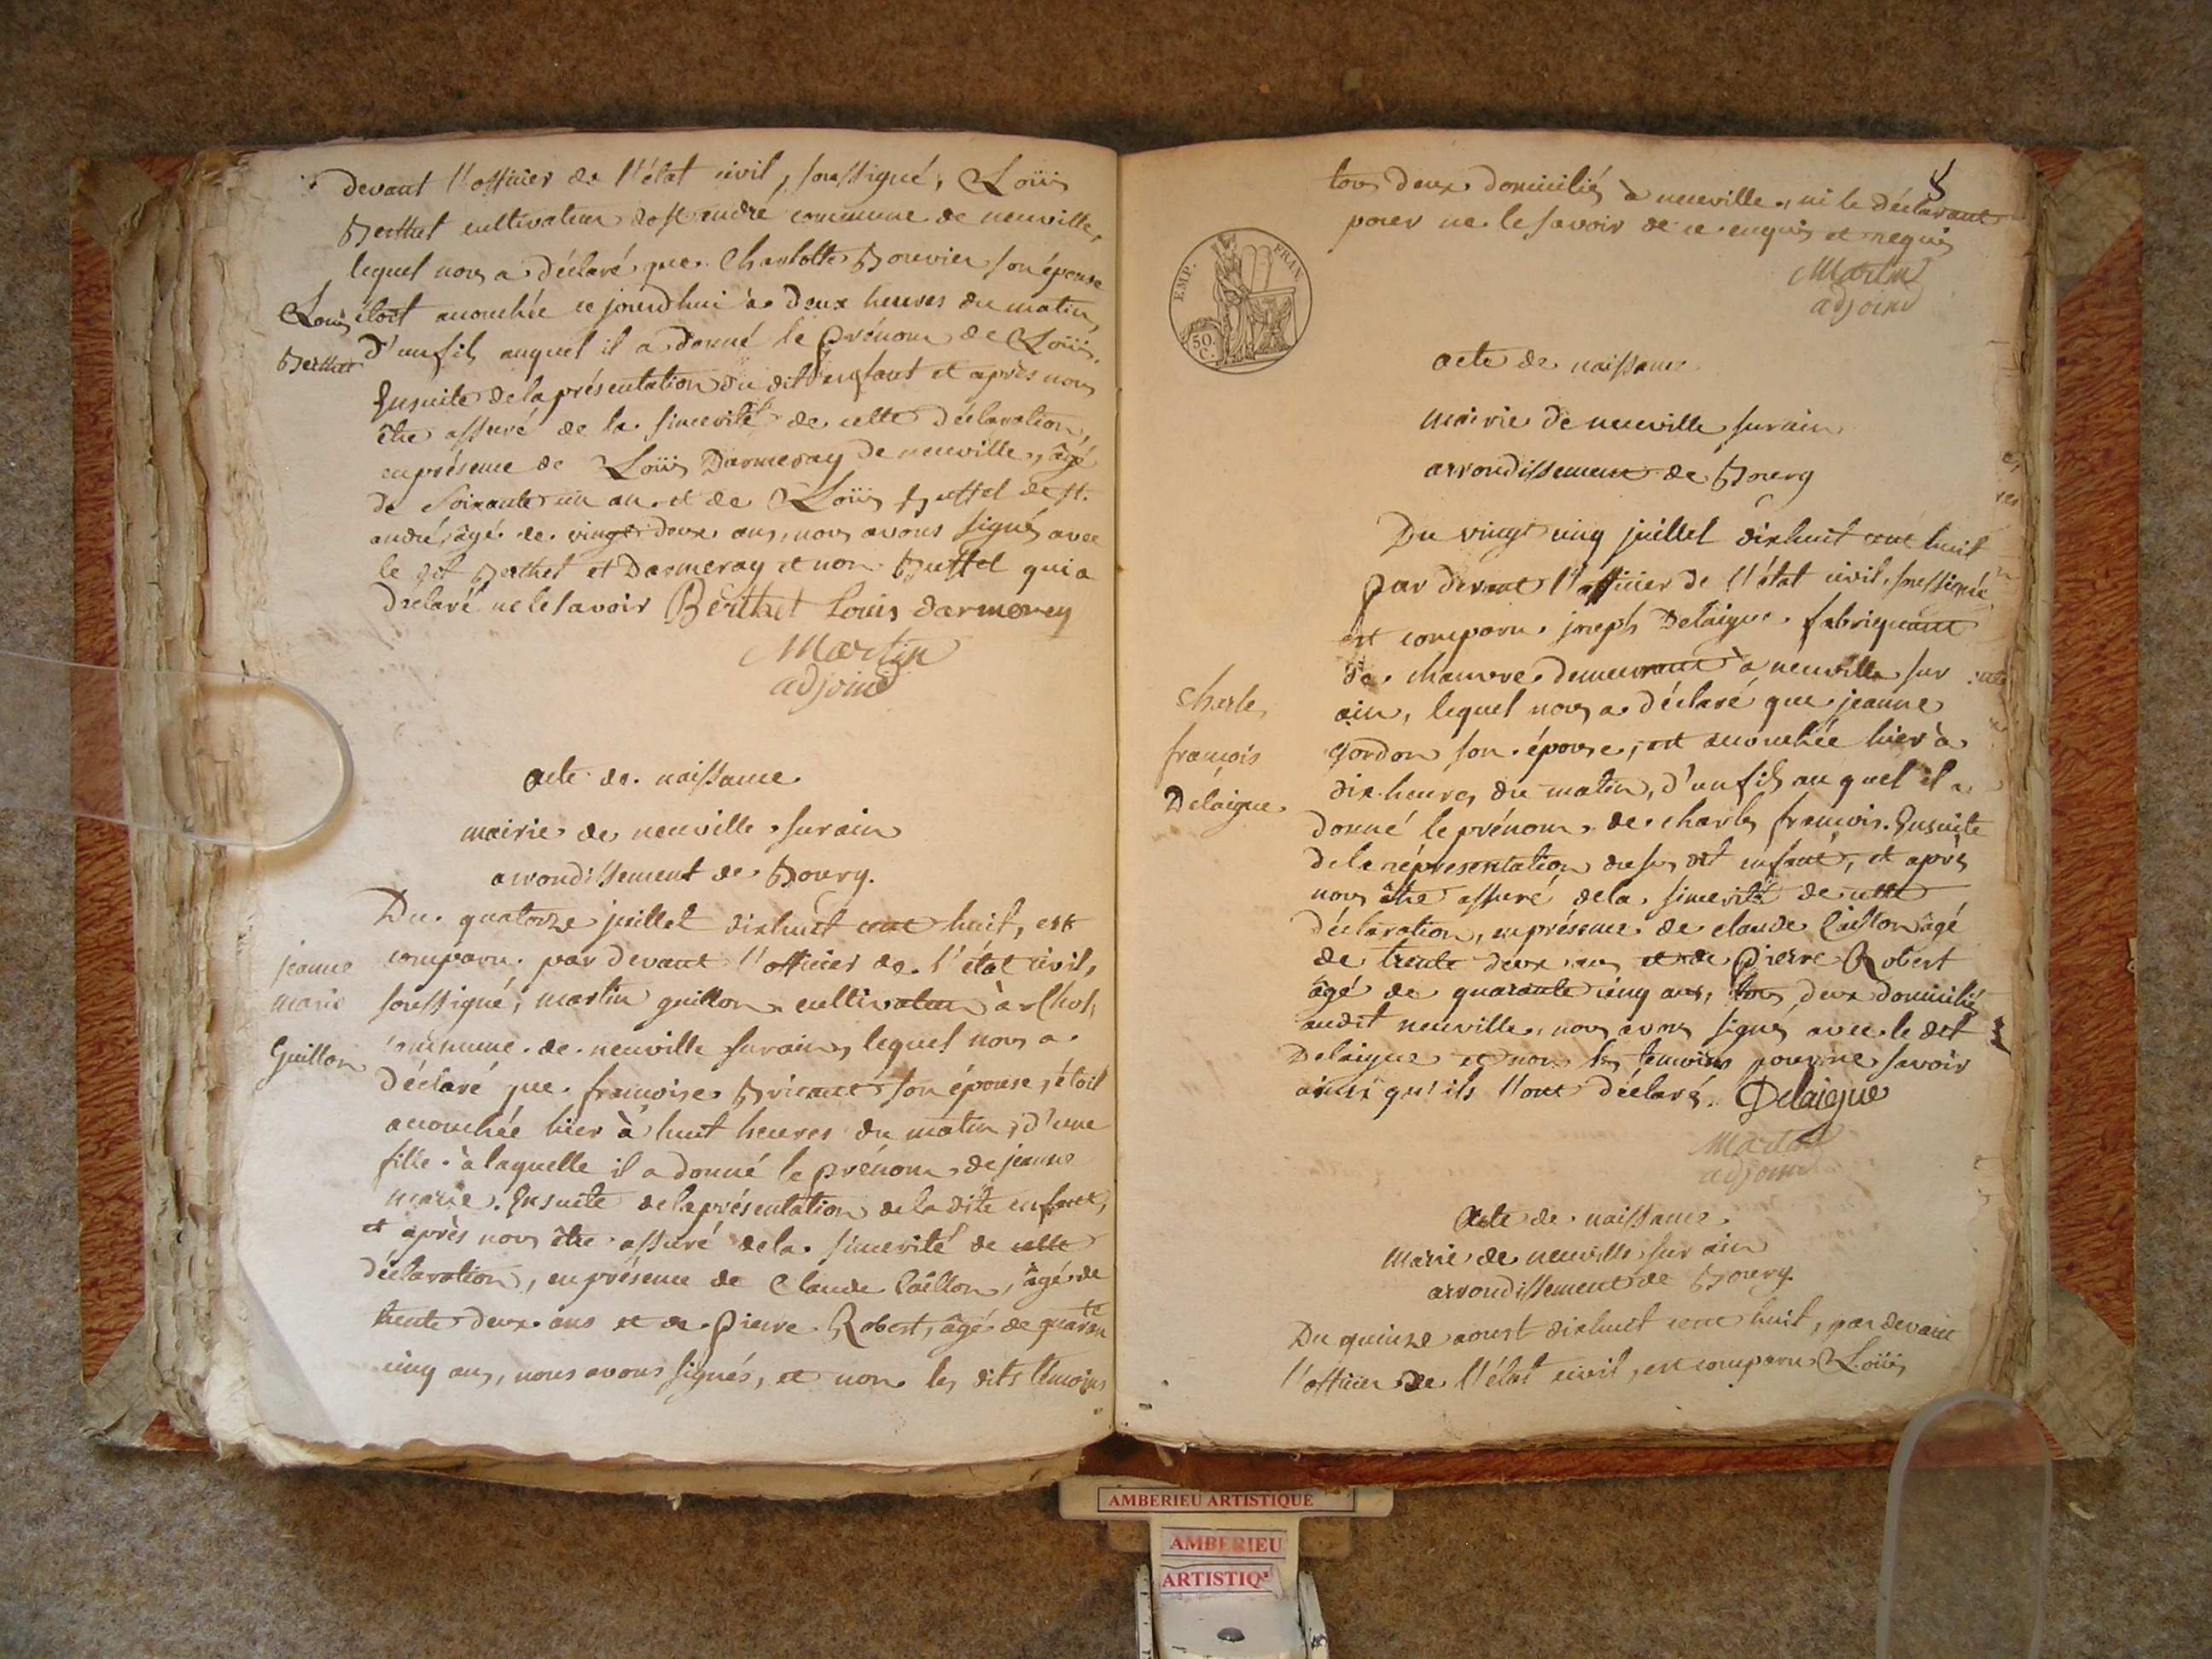 devant l'officier de l'état civil, soussigné, Loüis
Berthet cultivateur de st andré commune de neuville,
lequel nous a déclaré que Charlotte Bouvier son épouse
étoit accouchée ce jourdhui à deux heures du matin,
d'un fils auquel il a donné le prénom de Loüis.
Ensuite de la présentation du dit enfant et après nous
être assuré de la sincerité de cette déclaration,
en présence de Loüis Darmeray de neuville, âgé
de soixante un an et de Loüis Buffet de st.
andré, âgé de vingt deux ans, nous avons signés avec
le dit Berthet et Darmeray et non Buffet qui a
déclaré ne le savoir Berthet Louis darmerey
Martin
adjoind
Loüis
Berthet
acte de naissance
mairie de neuville sur ain
arrondissement de Bourg.
Du quatorze juillet dixhuit cent huit, est
comparu par devant l'officier de l'état civil,
soussigné, martin guillon cultivateur à
commune de neuville sur ain, lequel nous a
déclaré que francoise Briant son épouse, étoit
accouchée hier à huit heures du matin, d'une
fille à laquelle il a donné le prénom de jeanne
marie. Ensuite de la présentation de la dite enfant,
et après nous être assuré de la sincerité de cette
déclaration, en présence de Claude Caillon, âgé de
trente deux ans et de Pierre Robert, âgé de quarante
cinq ans, nous avons signés, et non les dits témoins
jeanne
marie
Guillon
tous deux domiciliés à neuville, ni le déclarant
pour ne le savoir de ce enquis et requis
Martin
adjoind
EMP. FRAN.
50.
C.
acte de naissance
mairie de neuville sur ain
arrondissement de Bourg
Du vingt cinq juillet dixhuit cent huit
par devant l'officier de l'état civil, soussigné,
est comparu joseph Delaigue fabriquant
de chanvre demeurant à neuville sur
ain, lequel nous a déclaré que jeanne
gordon son épouse, est accouchée hier à
dix heures du matin, d'un fils au quel il a
donné le prénom de charles francois. Ensuite
de la répresentation du sus dit enfant, et après
nous être assuré de la sincerité de cette
déclaration, en présence de claude Caillon âgé
de trente deux ans et de Pierre Robert
âgé de quarante cinq ans, tous deux domiciliés
audit neuville, nous avons signés avec le dit
Delaigue et non les temoins pour ne savoir
ainsi qu'ils l'ont déclaré. Delaigue
Martin
adjoind
Charles
françois
Delaigue
Acte de naissance
Marie de neuville sur ain
arrondissement de Bourg.
Du quinze aoust dixhuit cent huit, par devant
l'officier de l'état civil, est comparu Loüis
AMBERIEU ARTISTIQUE
AMBERIEU
ARTISTIQ